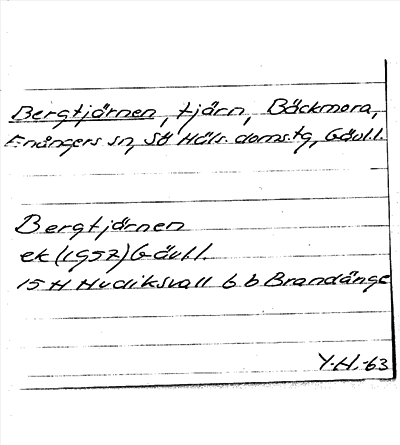 Bergtjärnen, tjärn, Bäckmora,
Enångers sn, SÖ Häls. doms.tg, Gävl.l.
Bergtjärnen
ek (1957) Gävl.l.
15 H Hudiksvall 6 b Brandänge
Y.H.-63